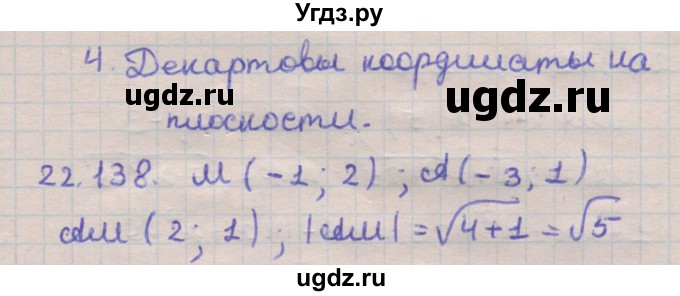 Угдз.ру
4. Декартовы координаты на
ugdz.ru ugdz.ru
плоскости.
22.138. M (-1; 2) ; A(-3; 1)
AM (2; 1) ; |AM| = √4+1 = √5
ugdz.ru